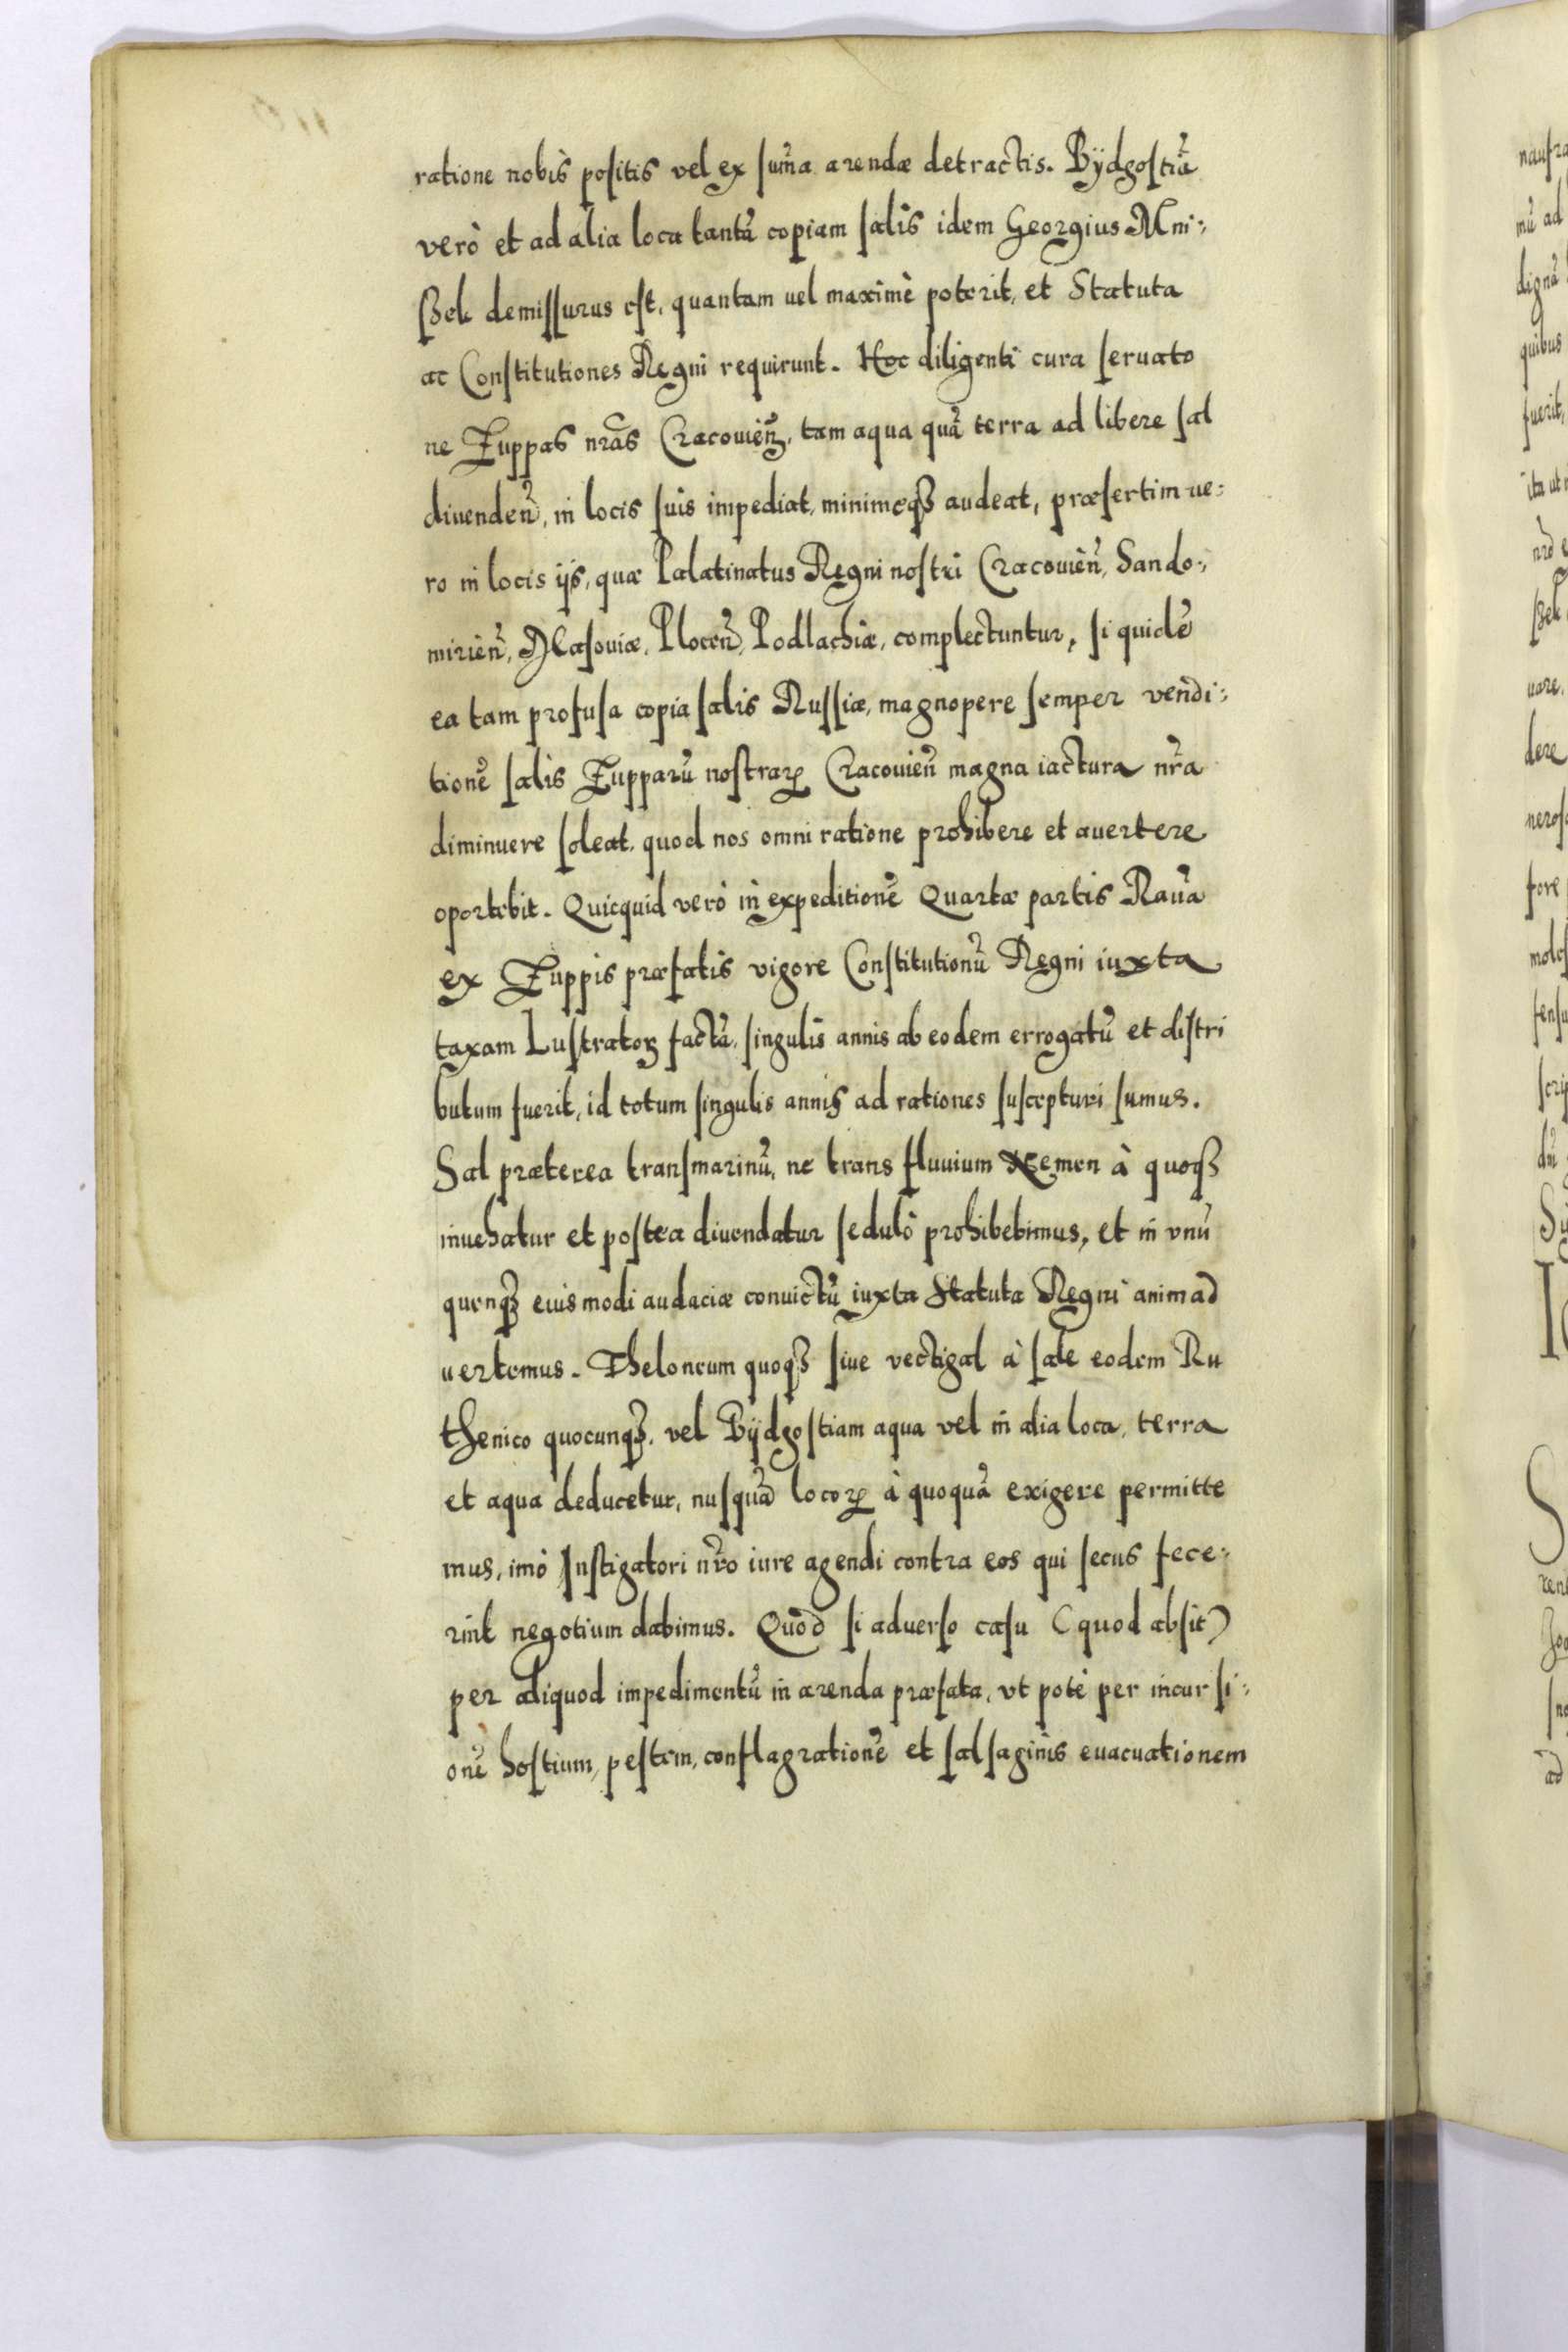 ratione nobis positis vel ex suma arendæ detractis. Bÿdgostiã
verò et ad alia loca tantã copiam salis idem Georgius Mni:
ßek demissurus est, quantam uel maximè poterit, et Statuta
ac Constitutiones Regni requirunt. Hoc diligenti cura seruato
ne Zuppas nr̃as Cracouieñ, tam aqua quã terra ad libere sal
diuendeñ, in locis suis impediat, minimeqꝫ audeat, præsertim ue:
ro in locis ijs, quæ Palatinatus Regni nostri Cracouieñ, Sando:
mirieñ, Masouiæ, Ploceñ, Podlachiæ, complectuntur, si quidẽ
ea tam profusa copia salis Russiæ, magnopere semper vendi:
tionẽ salis Zupparũ nostraꝝ Cracouieñ magna iactura nr̃a
diminuere soleat, quod nos omni ratione prohibere et auertere
oportebit. Quicquid verò in expeditionẽ Quartæ partis Rauã
ex Zuppis præfatis vigore Constitutionũ Regni iuxta
taxam Lustratoꝝ factã, singulis annis ab eodem errogatũ et distri
butum fuerit, id totum singulis annis ad rationes suscepturi sumus.
Sal præterea transmarinũ, ne trans fluuium Nemen à quoqꝫ
inuehatur et postea diuendatur sedulò prohibebimus, et in vnũ
quenqꝫ eiusmodi audaciæ conuictũ iuxta Statuta Regni animad
uertemus. Theloneum quoqꝫ siue vectigal à sale eodem Ru
thenico quocunqꝫ, vel Bÿdgostiam aqua vel in alia loca, terra
et aqua deducetur, nusquã locoꝝ à quoquã exigere permitte
mus, imò Instigatori nr̃o iure agendi contra eos qui secus fece:
rint negotium dabimus. Quòd si aduerso casu (quod absit)
per aliquod impedimentũ in arenda præfata, vt potè per incursi:
onẽ hostium, pestem, conflagrationẽ et salsaginis euacuationem